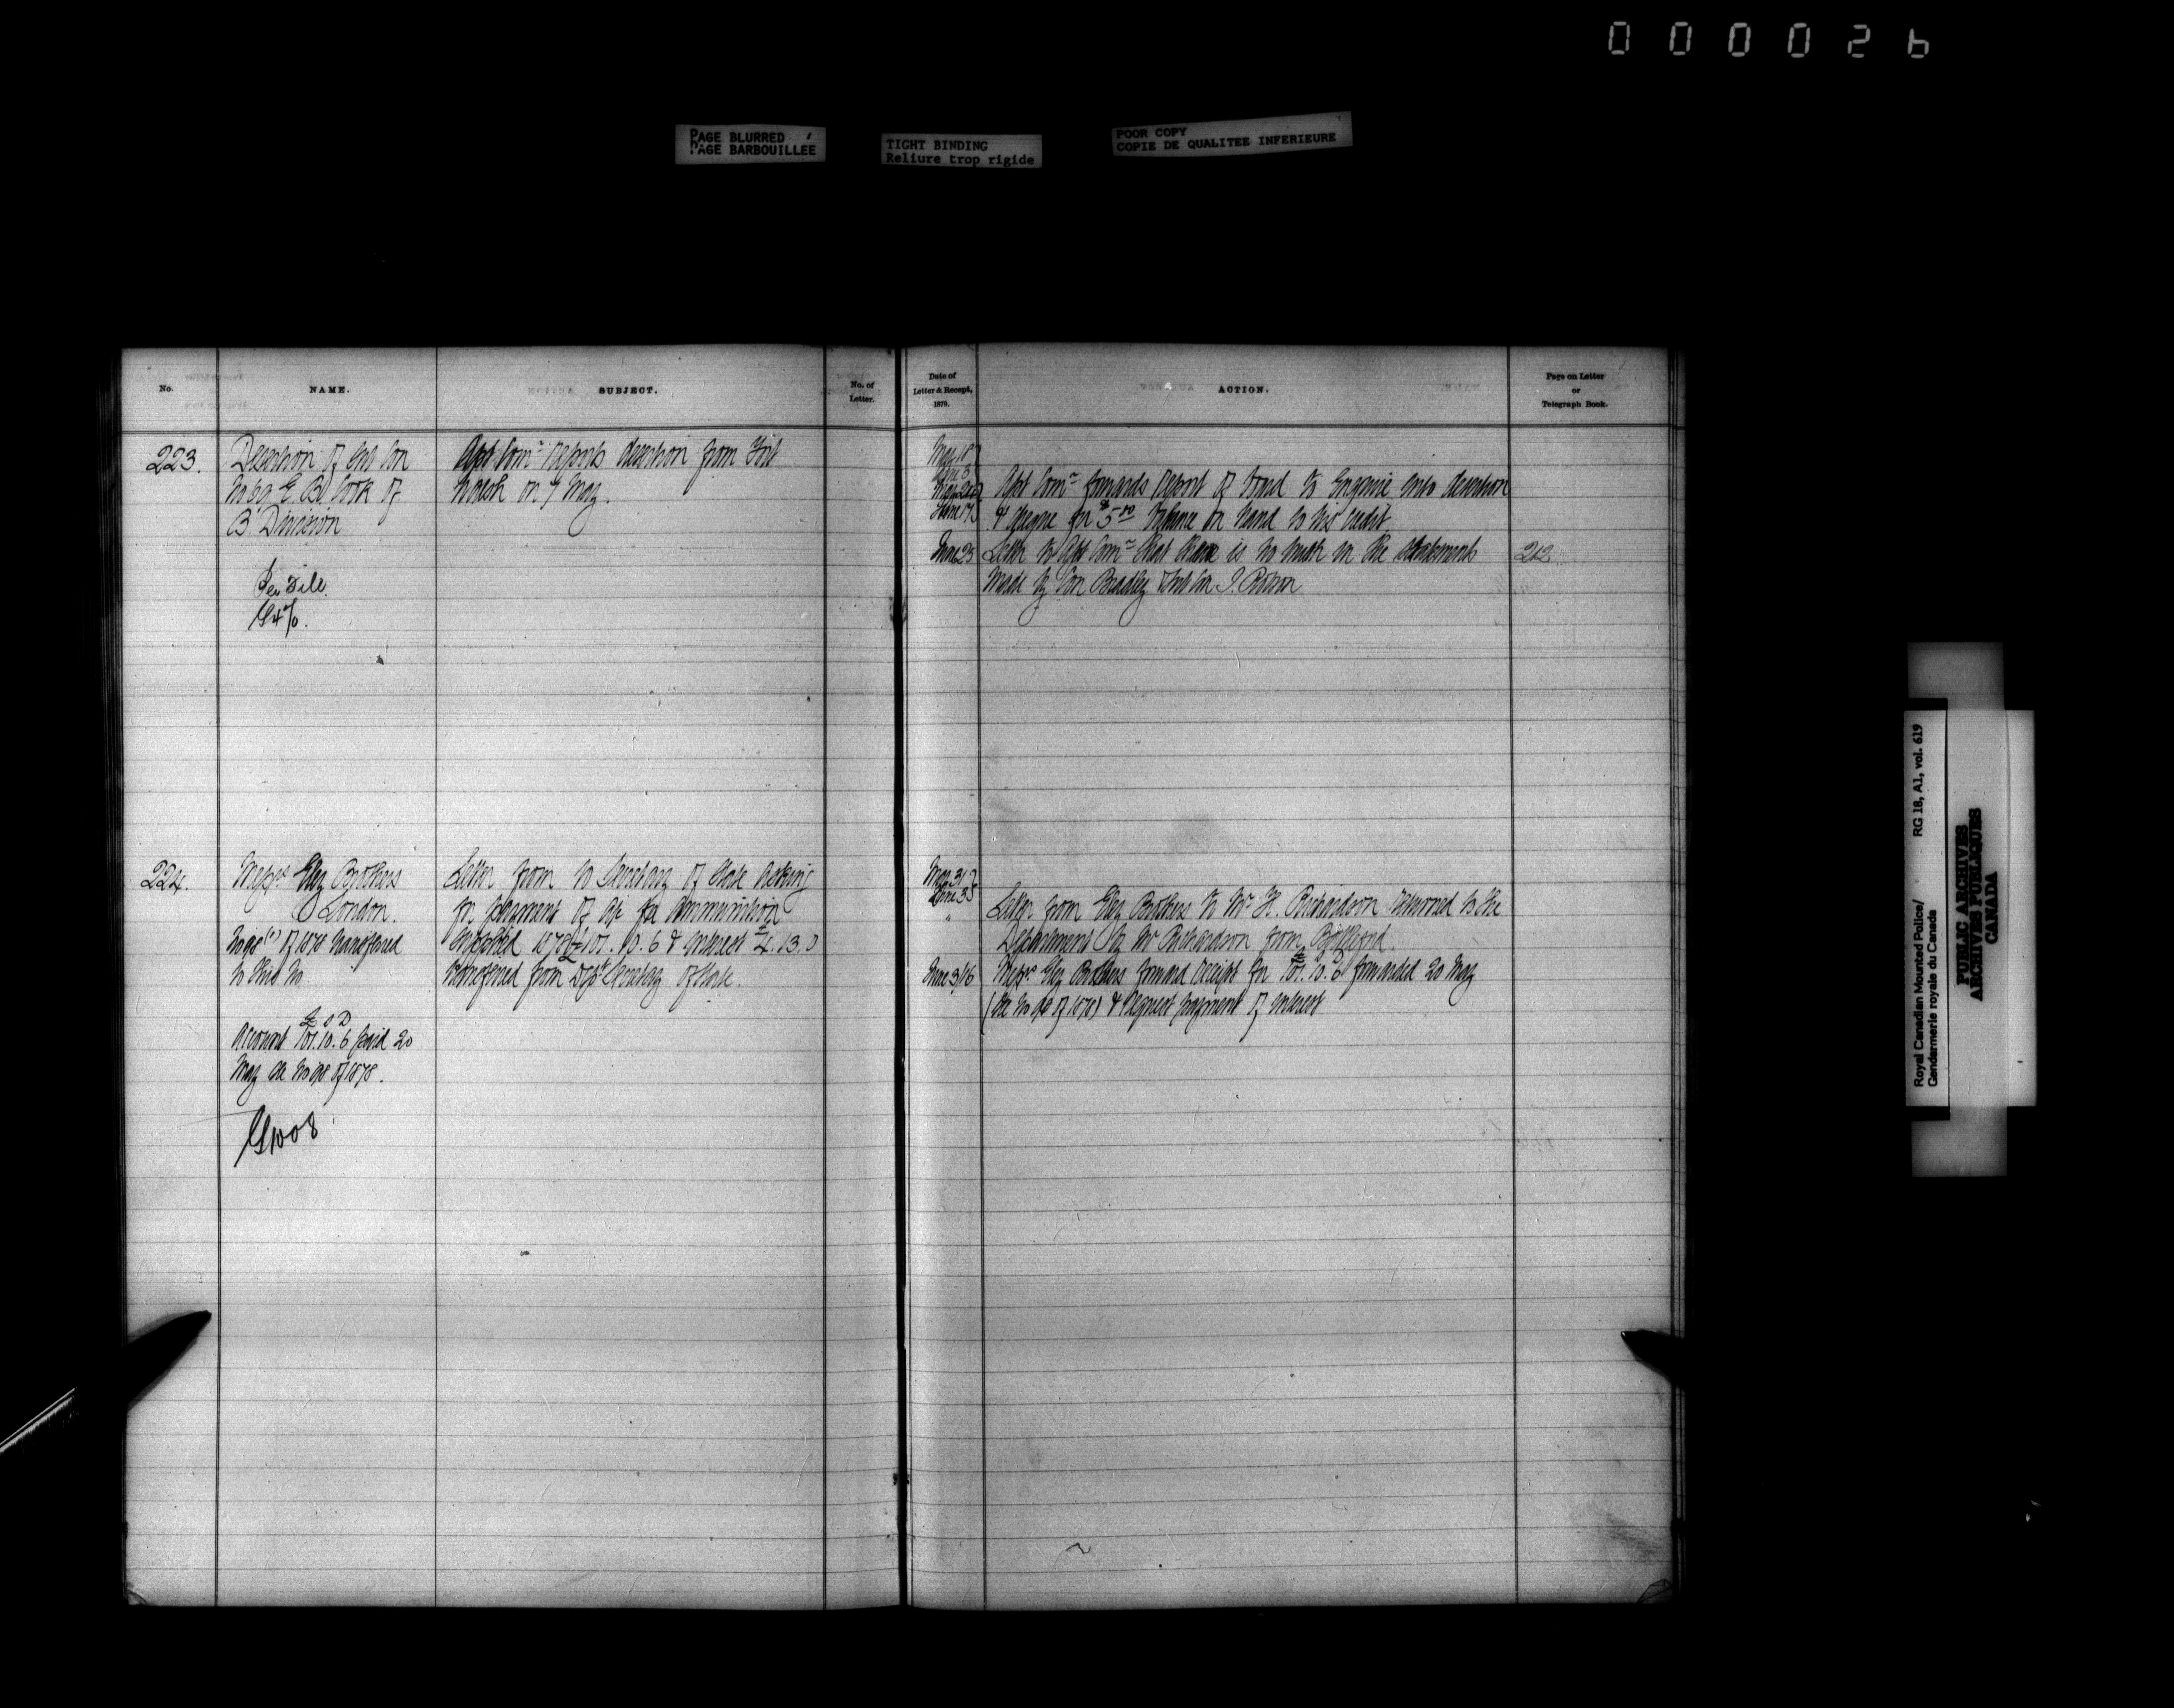 000026
PAGE BLURRED
PAGE BARBOUILLÉE
TIGHT BINDING
Reliure trop rigide
POOR COPY
COPIE DE QUALITEE INFERIEURE
No.
NAME.
SUBJECT.
No. of
Letter.
Date of
Letter & Receipt,
1879.
ACTION.
Page on Letter
or
Telegraph Book.
223.
Desertion of
Cook of
B Division
Asst Comr reports desertion from Fort
Walsh on 7 May.
May 18
June 3
June 17
Asst Comr forwards report of Board to Enquire into desertion
& cheque for $5 balance on hand to his credit
June 25
Letter to Asst Comr that there is no truth in the statements
212
made by Con Bradley
224.
Messrs Eley Brothers
London.
of 1878 transferred
to this No.
Account £ s D
101.10.6 paid 20
May see No 98 of 1878.
1008
Letter from to Secretary of State asking
for payment of a/c for ammunition
supplied 1878 £101.10.6 & interest £4.13.0
transferred from Dept Secretary of State.
May 31
June 3
"
Letter from Eley Brothers to Mr H. Richardson returned to the
Department by Mr Richardson from Battleford.
June 3/16
Messrs Eley Brothers forward receipt for £101.10.6 forwarded 20 May
(See No 98 of 1878) & request payment of interest
Royal Canadian Mounted Police/
Gendarmerie royale du Canada
RG 18, A1, vol. 619
PUBLIC ARCHIVES
ARCHIVES PUBLIQUES
CANADA